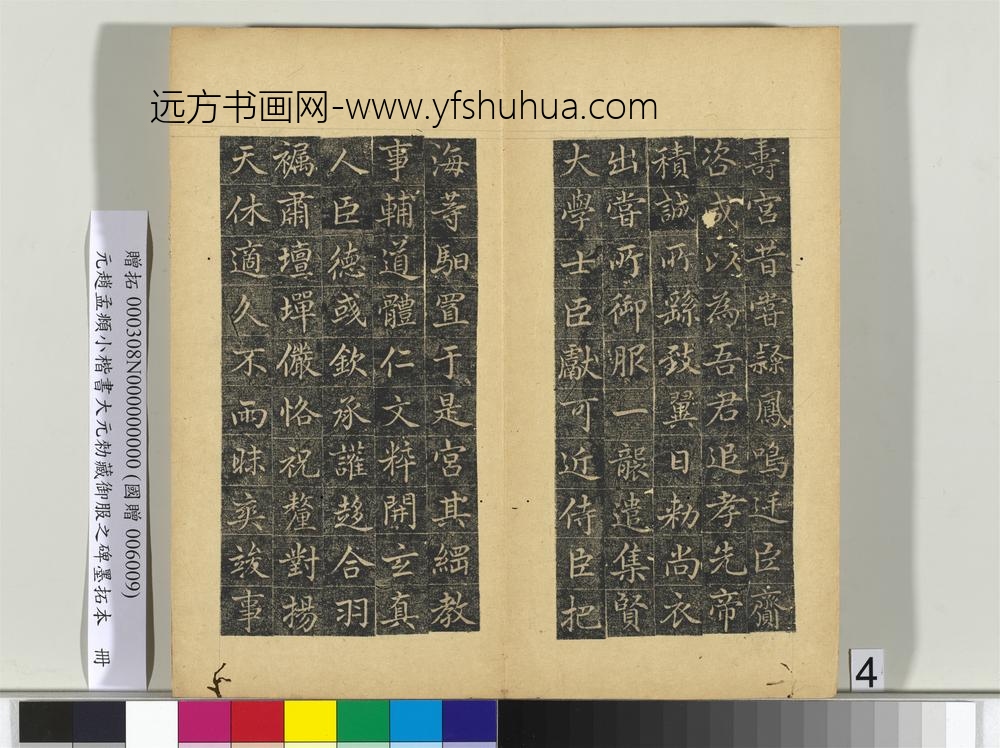 远方书画网-www.yfshuhua.com
壽宮昔嘗鳳鳴臣齎
咨或以為吾君追孝先帝
積誠所繇致翼日勑尚衣
出嘗所御服一襲遣集賢
大學士臣獻可近侍臣把
海等馹置于是宮其綱教
事輔道體仁文粹開玄真
人臣德彧欽承讙趍合羽
褐肅壇墠儼恪祝釐對揚
天休適久不雨昧爽竣事
贈拓 000308N000000000 (國贈 006009)
元趙孟頫小楷書大元勑藏御服之碑墨拓本 冊
4